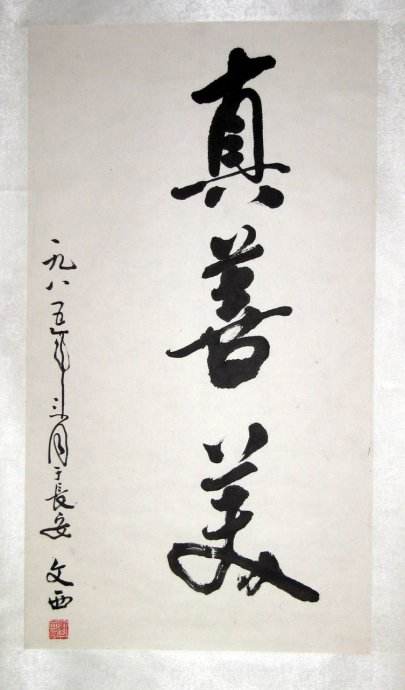 真善美
一九八五年三月于長安 文西